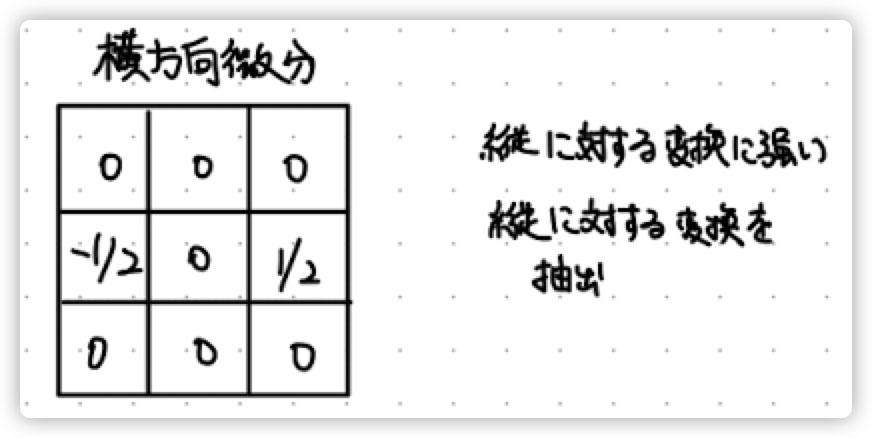 横方向微分
0 0 0
-1/2 0 1/2
0 0 0
縦に対する変換に強い
縦に対する変換を
抽出